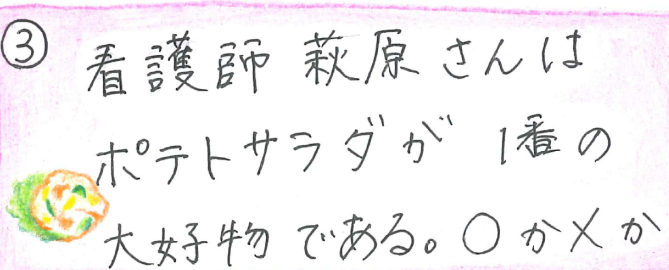 ③ 看護師 萩原さんは
ポテトサラダが 1番の
大好物である。○か×か